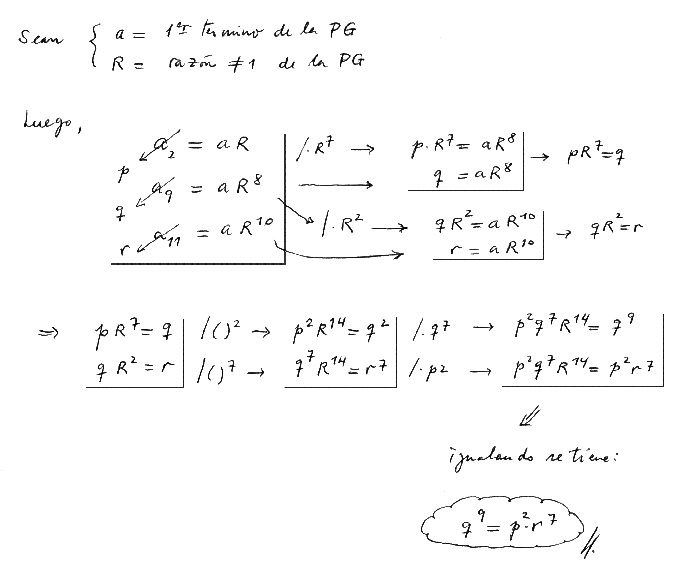 Sean { a = 1er termino de la PG
R = razón ≠ 1 de la PG
Luego,
p ↙ a₂ = aR /·R⁷ → p·R⁷ = aR⁸ → pR⁷ = q
q ↙ a₉ = aR⁸ → q = aR⁸
/·R² → qR² = aR¹⁰ → qR² = r
r ↙ a₁₁ = aR¹⁰ → r = aR¹⁰
⇒ pR⁷ = q /( )² → p²R¹⁴ = q² /·q⁷ → p²q⁷R¹⁴ = q⁹
qR² = r /( )⁷ → q⁷R¹⁴ = r⁷ /·p² → p²q⁷R¹⁴ = p²r⁷
igualando se tiene:
q⁹ = p²·r⁷